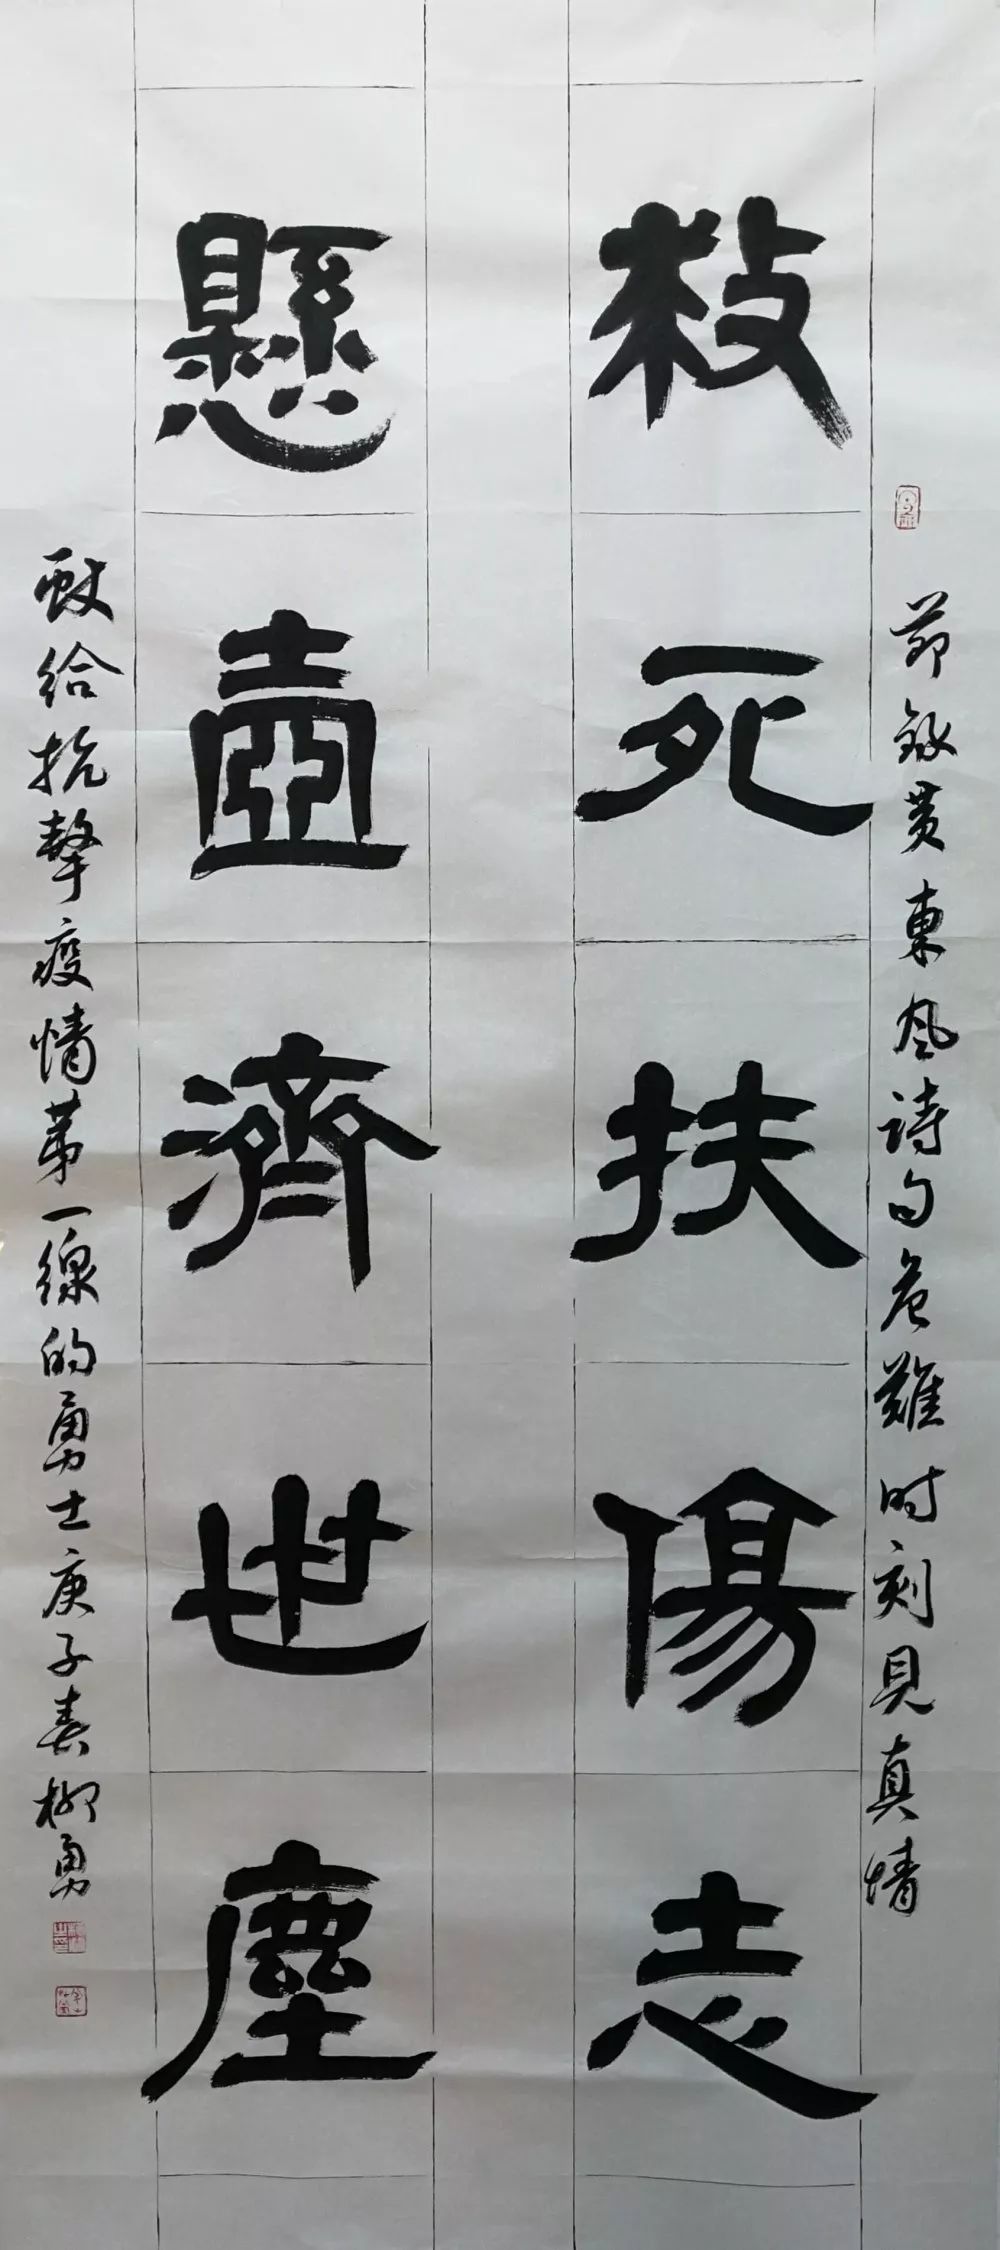 節錄黄東风詩句危難时刻見真情
救死扶傷志
懸壺濟世塵
獻给抗擊疫情第一線的勇士庚子春柳勇